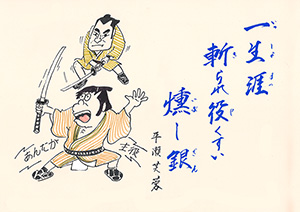 一生涯
斬られ役くすい
燻し銀
平瀬芙蓉
あんたが
主役